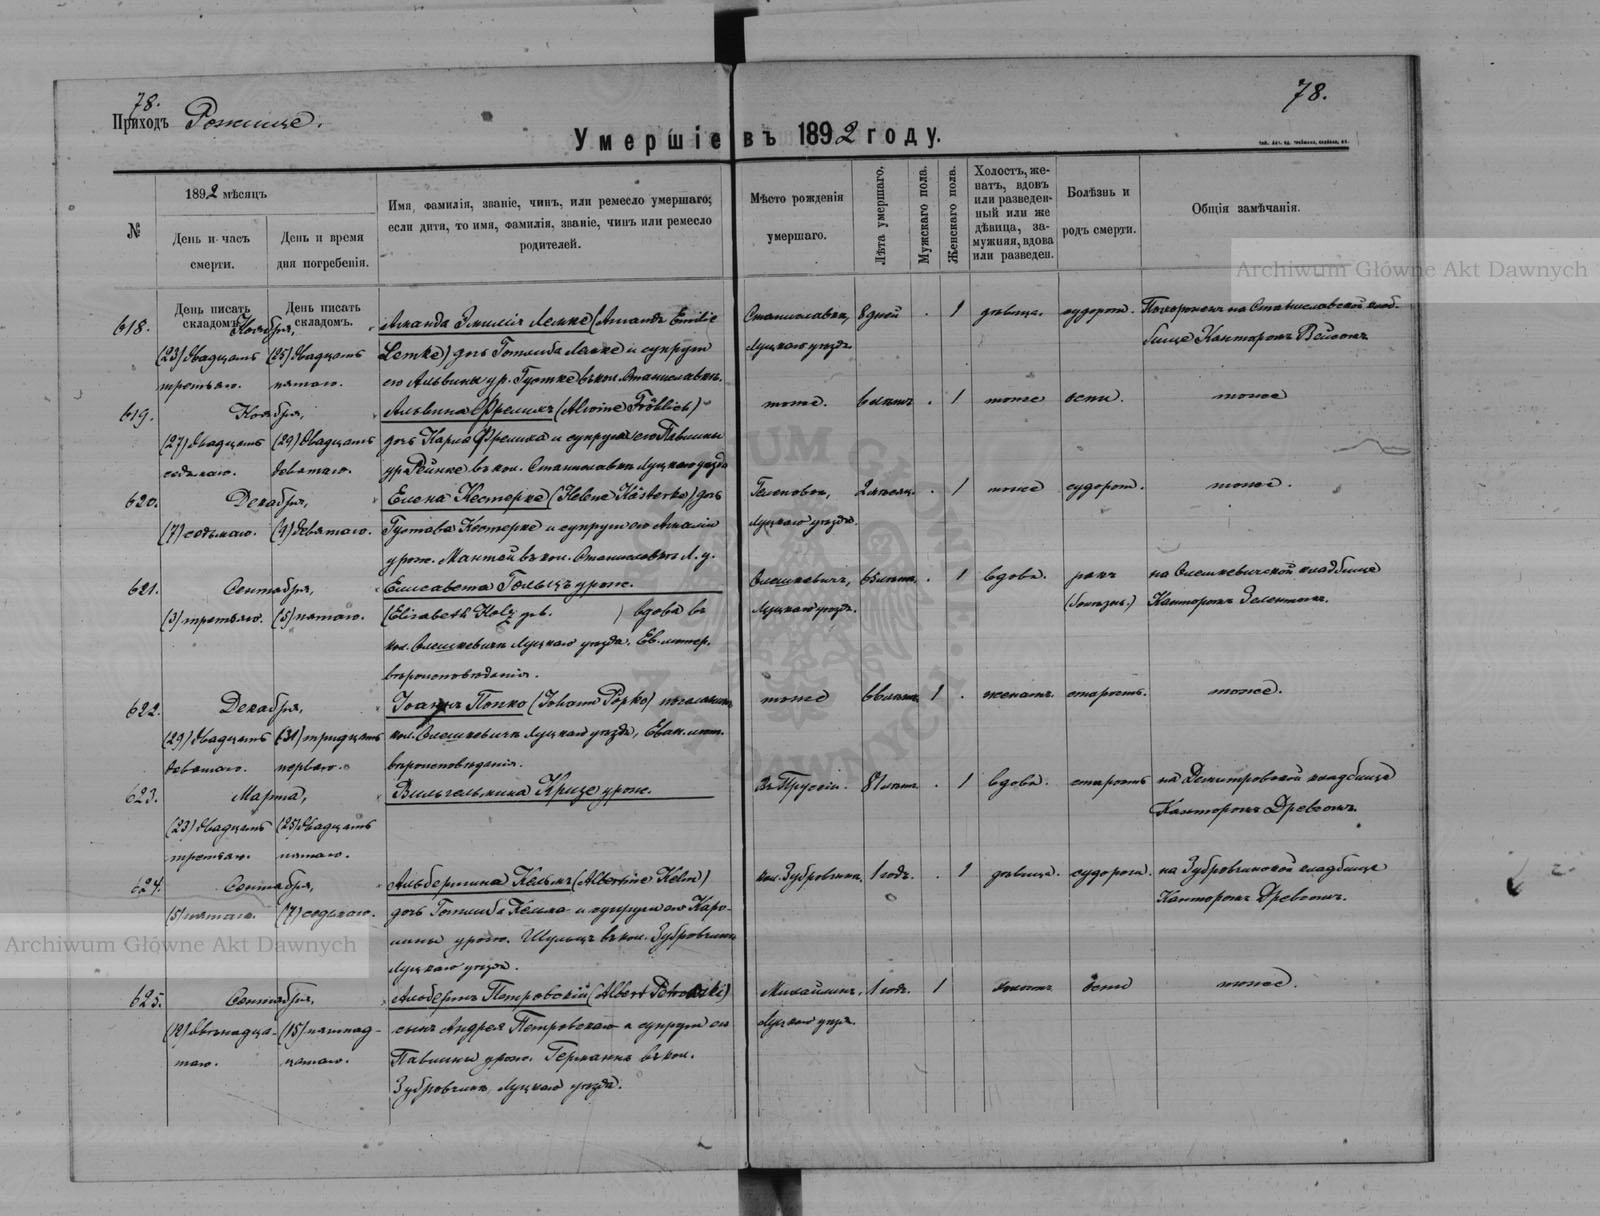 78.
Приходъ Рожище.
78.
Умершіе въ 1892 году.
№
1892 мѣсяцъ
День и часъ смерти.
День и время дня погребенія.
Имя, фамилія, званіе, чинъ, или ремесло умершаго;
если дитя, то имя, фамилія, званіе, чинъ или ремесло
родителей.
Мѣсто рожденія
умершаго.
Лѣта умершаго.
Мужскаго пола.
Женскаго пола.
Холостъ, же-
натъ, вдовъ
или разведен-
ный или же
дѣвица, за-
мужняя, вдова
или разведен.
Болѣзнь и
родъ смерти.
Общія замѣчанія.
День писать складомъ.
День писать складомъ.
618. Ноября, Аманда Эмилія Лемке (Amanda Emilie Станиславка, 8 дней . 1 дѣвица. судорог. Похороненъ на Станиславской клад-
(23) двадцать (25) двадцать Lemke) дочь Готлиба Лемке и супруги Луцкаго уѣзда бище Канторомъ
третьяго. пятаго. его Альвины ур. Густке въ кол. Станиславка.
619. Ноября, Альвина Фрелихъ (Alwine Fröhlich) тоже. 6 лѣтъ . 1 тоже оспи. тоже
(27) двадцать (29) двадцать дочь Карла Фрелиха и супруги его Павлины
седьмаго. девятаго. ур. Рейнке въ кол. Станиславка Луцкаго уѣзда
620. Декабря, Елена Кестерке (Helene Kästerke) дочь 2 мѣсяц. . 1 тоже судорог. тоже.
(7) седьмаго. (9) девятаго. Густава Кестерке и супруги его Амаліи Луцкаго уѣзда.
урож. Мантай въ кол. Станиславка Л. у.
621. Сентября, Елисавета Гольцъ урож. Олешкевичъ, 65 лѣтъ . 1 вдова. ракъ на Олешкевичской кладбище
(3) третьяго. (5) пятаго. (Elisabeth Holz geb. ) вдова въ Луцкаго уѣзда. (болѣзнь.) Канторомъ Зелентомъ.
кол. Олешкевичъ Луцкаго уѣзда. Ев. лютер.
вѣроисповѣданія.
622. Декабря, Іоганъ Попко (Johann Popko) тоже 66 лѣтъ 1 . женатъ. старость. тоже.
(29) двадцать (31) тридцать кол. Олешковичъ Луцкаго уѣзда, Еван. лют.
девятаго. перваго. вѣроисповѣданія.
623. Марта, Вильгельмина Кризе урож. Въ Пруссіи. 81 лѣтъ . 1 вдова. старость на Димитровкой кладбище
(23) двадцать (25) двадцать Канторомъ Древсомъ.
третьяго. пятаго.
624. Сентября, Альбертина Кельмъ (Albertine Kelm) кол. Зубровчина, 1 годъ. . 1 дѣвица. судорога. на Зубровчиской кладбище
(5) пятаго. (7) седьмаго. дочь Готлиба Кельма и супруги его Каро- Канторомъ Древсомъ.
лины урож. Шульцъ въ кол. Зубровчина
Луцкаго уѣзда.
625. Сентября, Альбертъ Петровскій (Albert Petrowski) Михайлинъ, 1 годъ 1 холостъ оспи тоже.
(12) двѣнадца- (15) пятнад- сынъ Андрея Петровскаго и супруги его Луцкаго уѣзда.
таго. цатаго. Павлины урож. Германъ въ кол.
Зубровчина Луцкаго уѣзда.
Archiwum Główne Akt Dawnych
Archiwum Główne Akt Dawnych